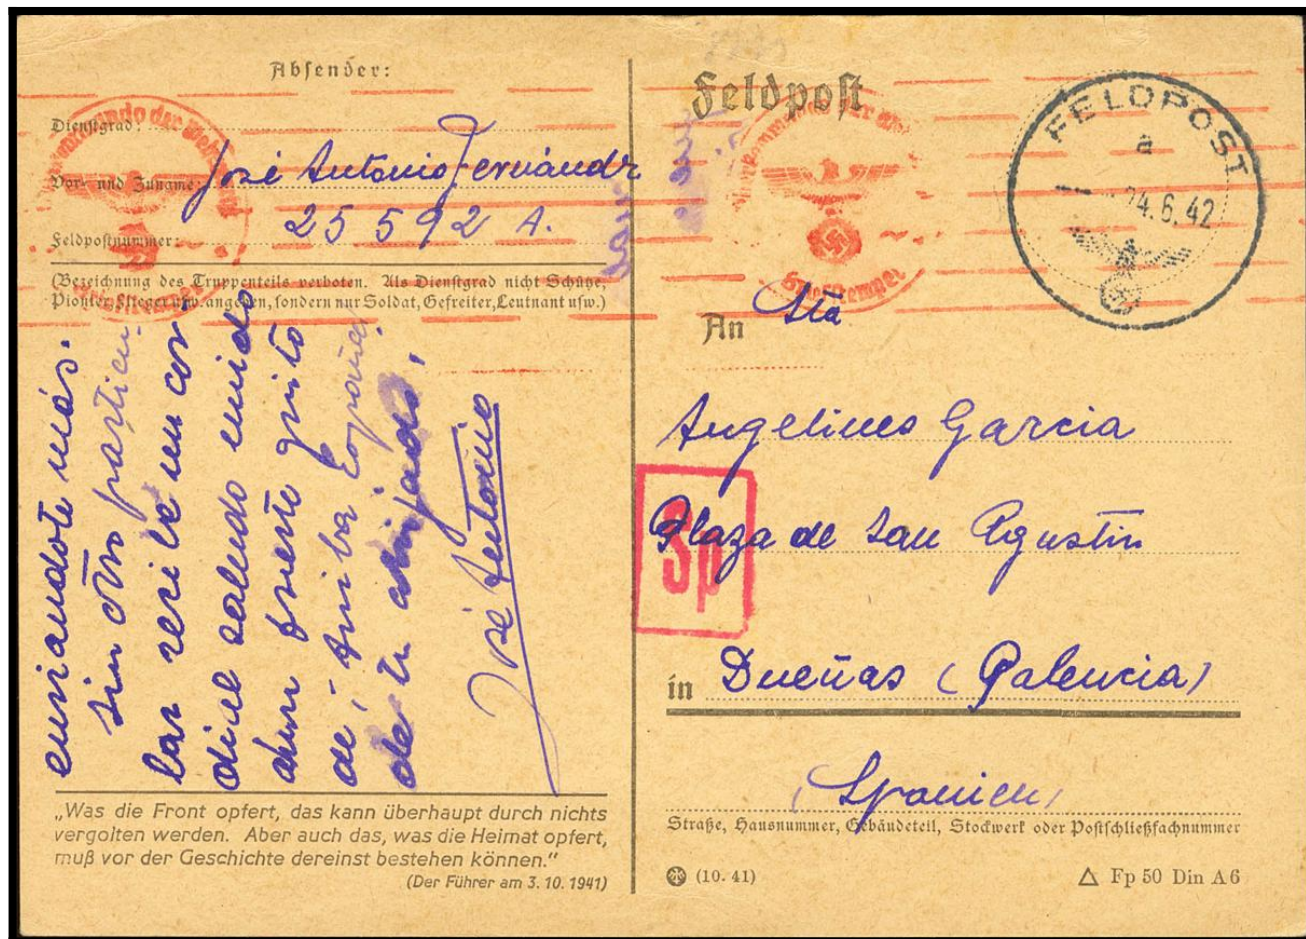 Absender:
Dienstgrad:
Vor- und Zuname: José Antonio Fernándz
Feldpostnummer: 25 592 A.
(Bezeichnung des Truppenteils verboten. Als Dienstgrad nicht Schütze,
Pionier, Flieger usw. angeben, sondern nur Soldat, Gefreiter, Leutnant usw.)
enviandote más.
Sin otro particu-
lar recibe un cor-
dial saludo unido
a un fuerte grito
de, Arriba España!
de tu ahijado,
José Antonio
„Was die Front opfert, das kann überhaupt durch nichts
vergolten werden. Aber auch das, was die Heimat opfert,
muß vor der Geschichte dereinst bestehen können.“
(Der Führer am 3. 10. 1941)
Feldpost
FELDPOST
a
24.6.42
Oberkommando der
Briefstempel
An Sta
Angelines Garcia
Sp
Plaza de San Agustin
in Dueñas (Palencia)
(Spanien)
Straße, Hausnummer, Gebäudeteil, Stockwerk oder Postschließfachnummer
(10. 41)
△ Fp 50 Din A6